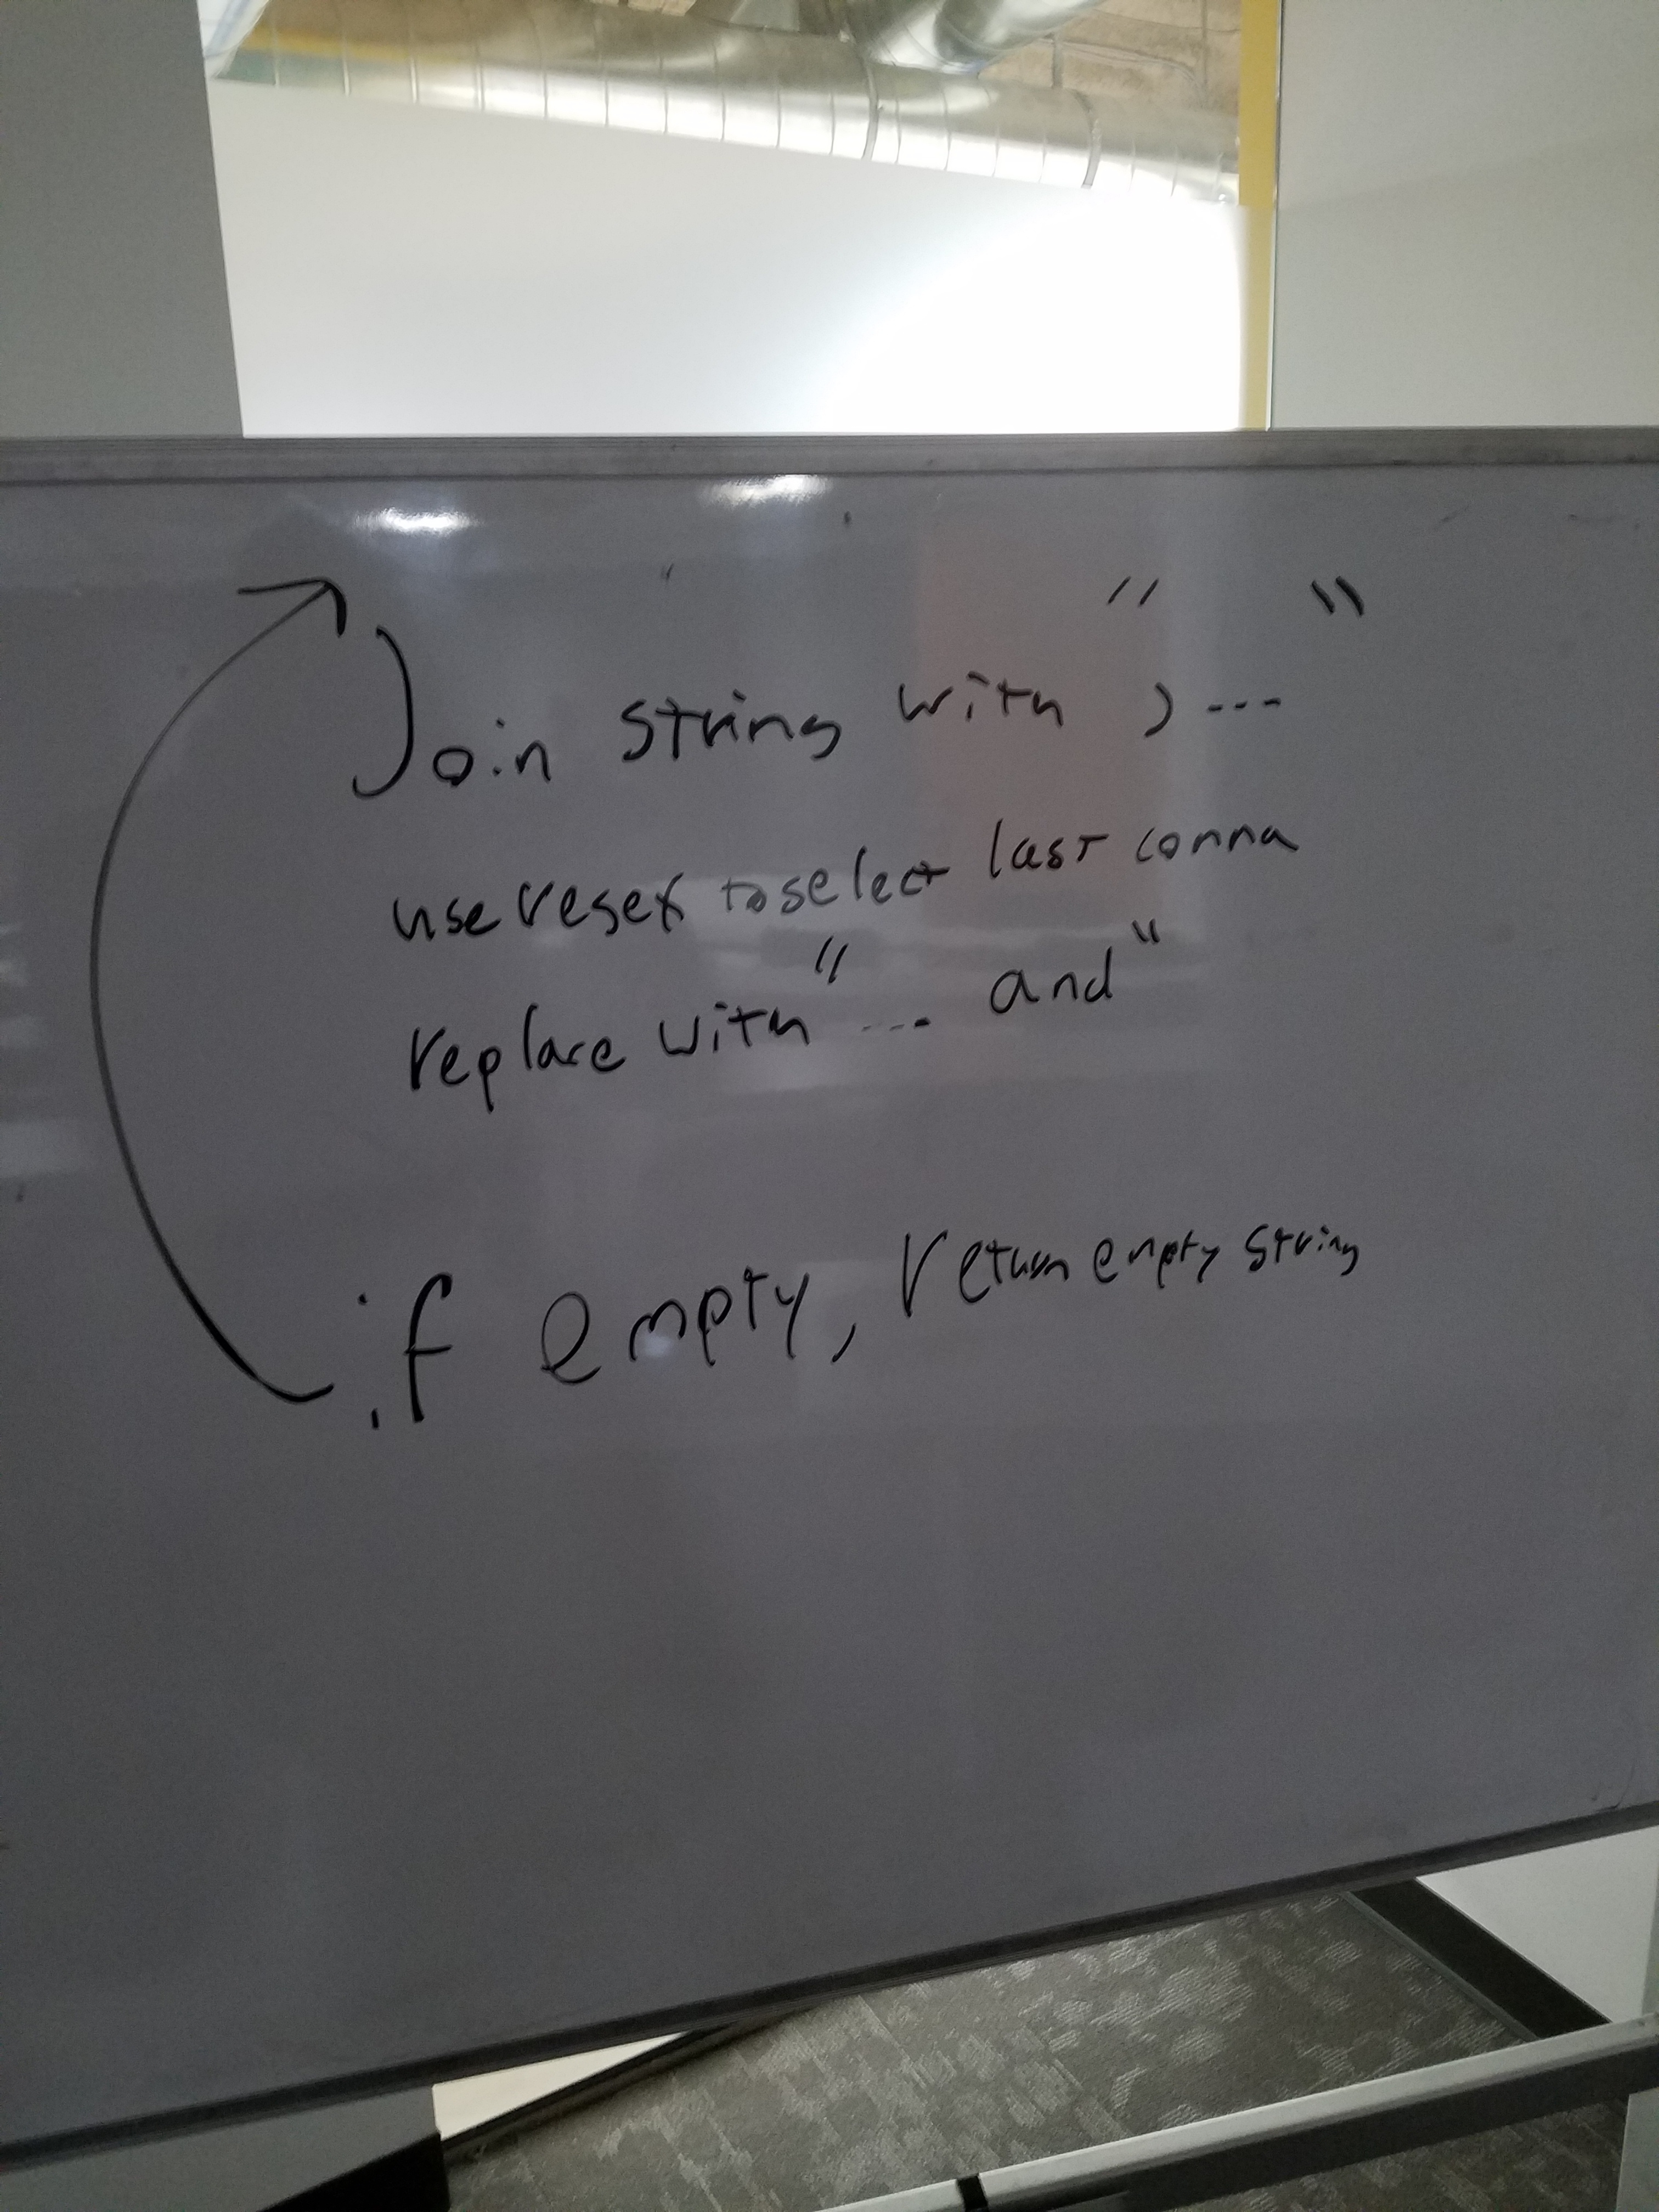 Join string with ", ---"
use regex to select last comma
replace with " --- and"
if empty, return empty string